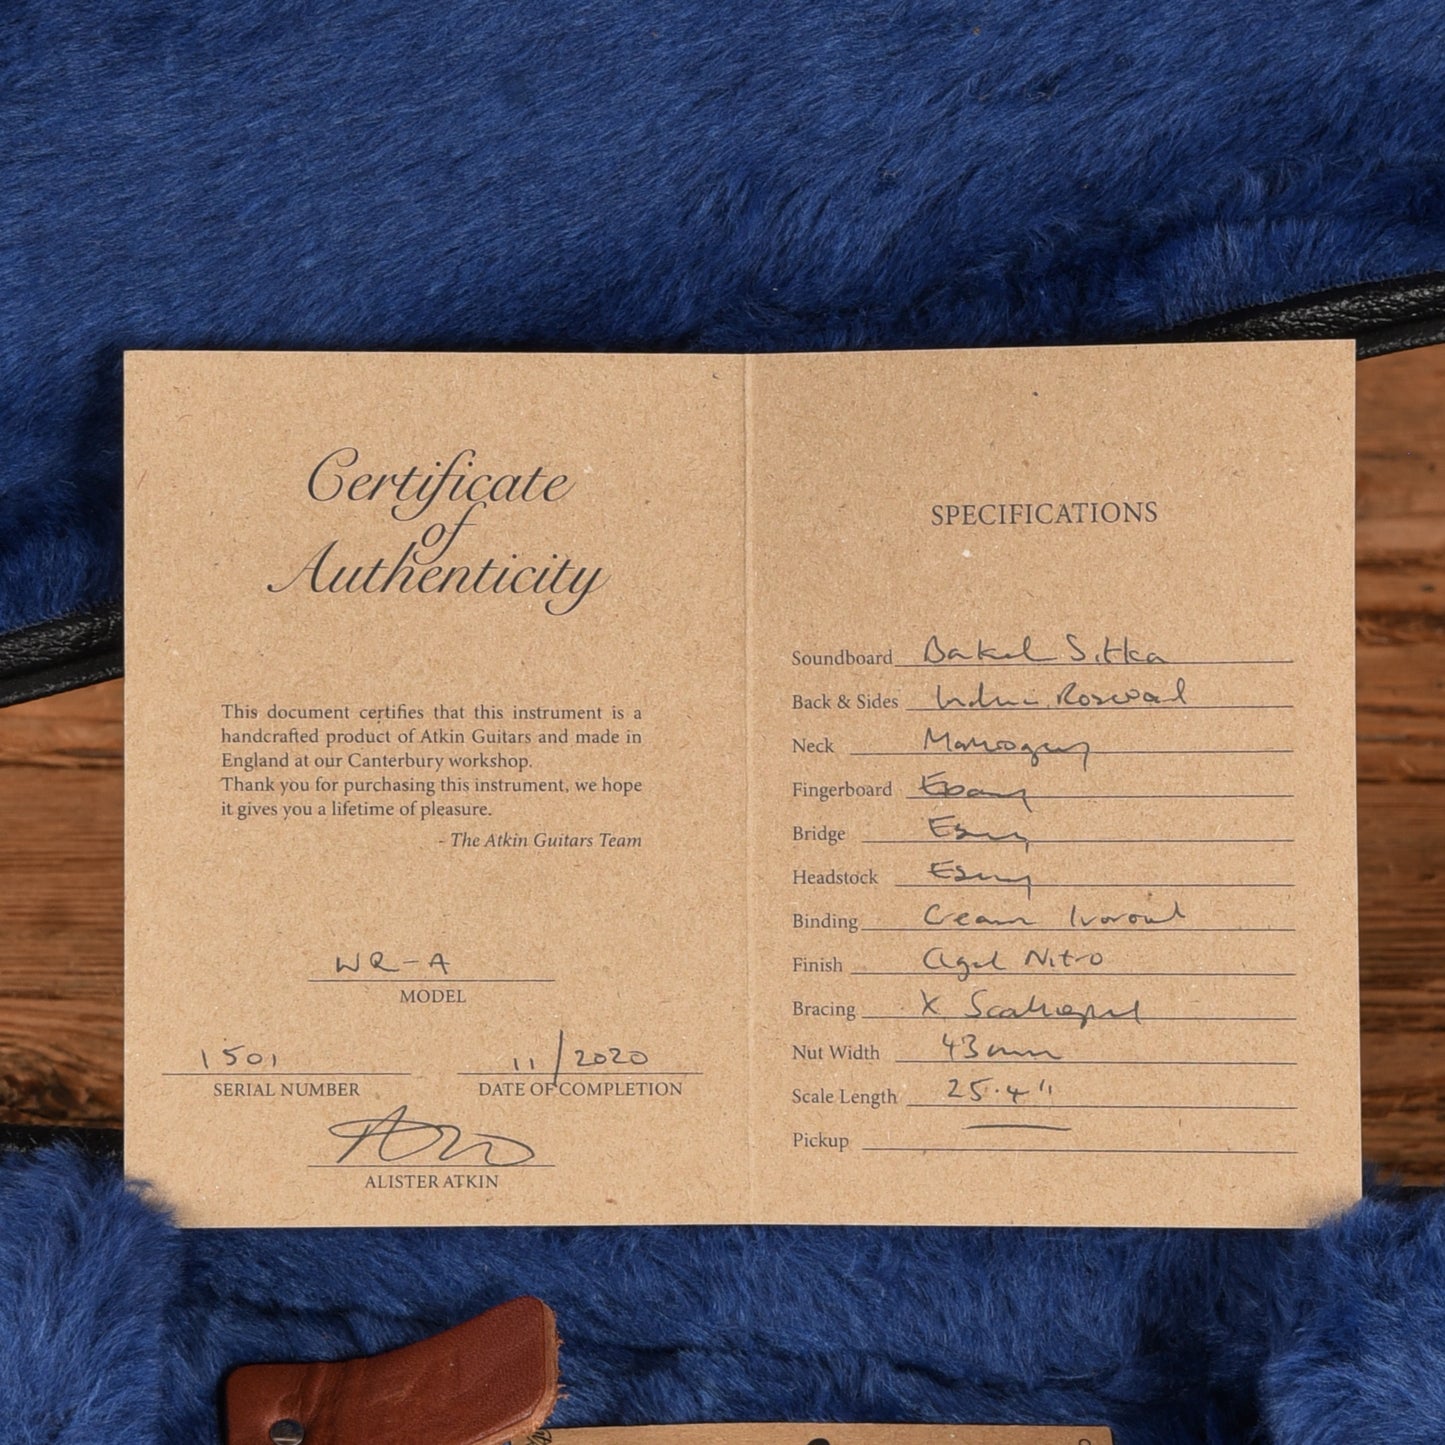 Certificate
of
Authenticity
This document certifies that this instrument is a
handcrafted product of Atkin Guitars and made in
England at our Canterbury workshop.
Thank you for purchasing this instrument, we hope
it gives you a lifetime of pleasure.
- The Atkin Guitars Team
WR-A
MODEL
1501
SERIAL NUMBER
11/2020
DATE OF COMPLETION
ALISTER ATKIN
SPECIFICATIONS
Soundboard Baked Sitka
Back & Sides Indian Rosewood
Neck Mahogany
Fingerboard Ebony
Bridge Ebony
Headstock Ebony
Binding Cream Ivoroid
Finish Aged Nitro
Bracing X Scalloped
Nut Width 43mm
Scale Length 25.4"
Pickup